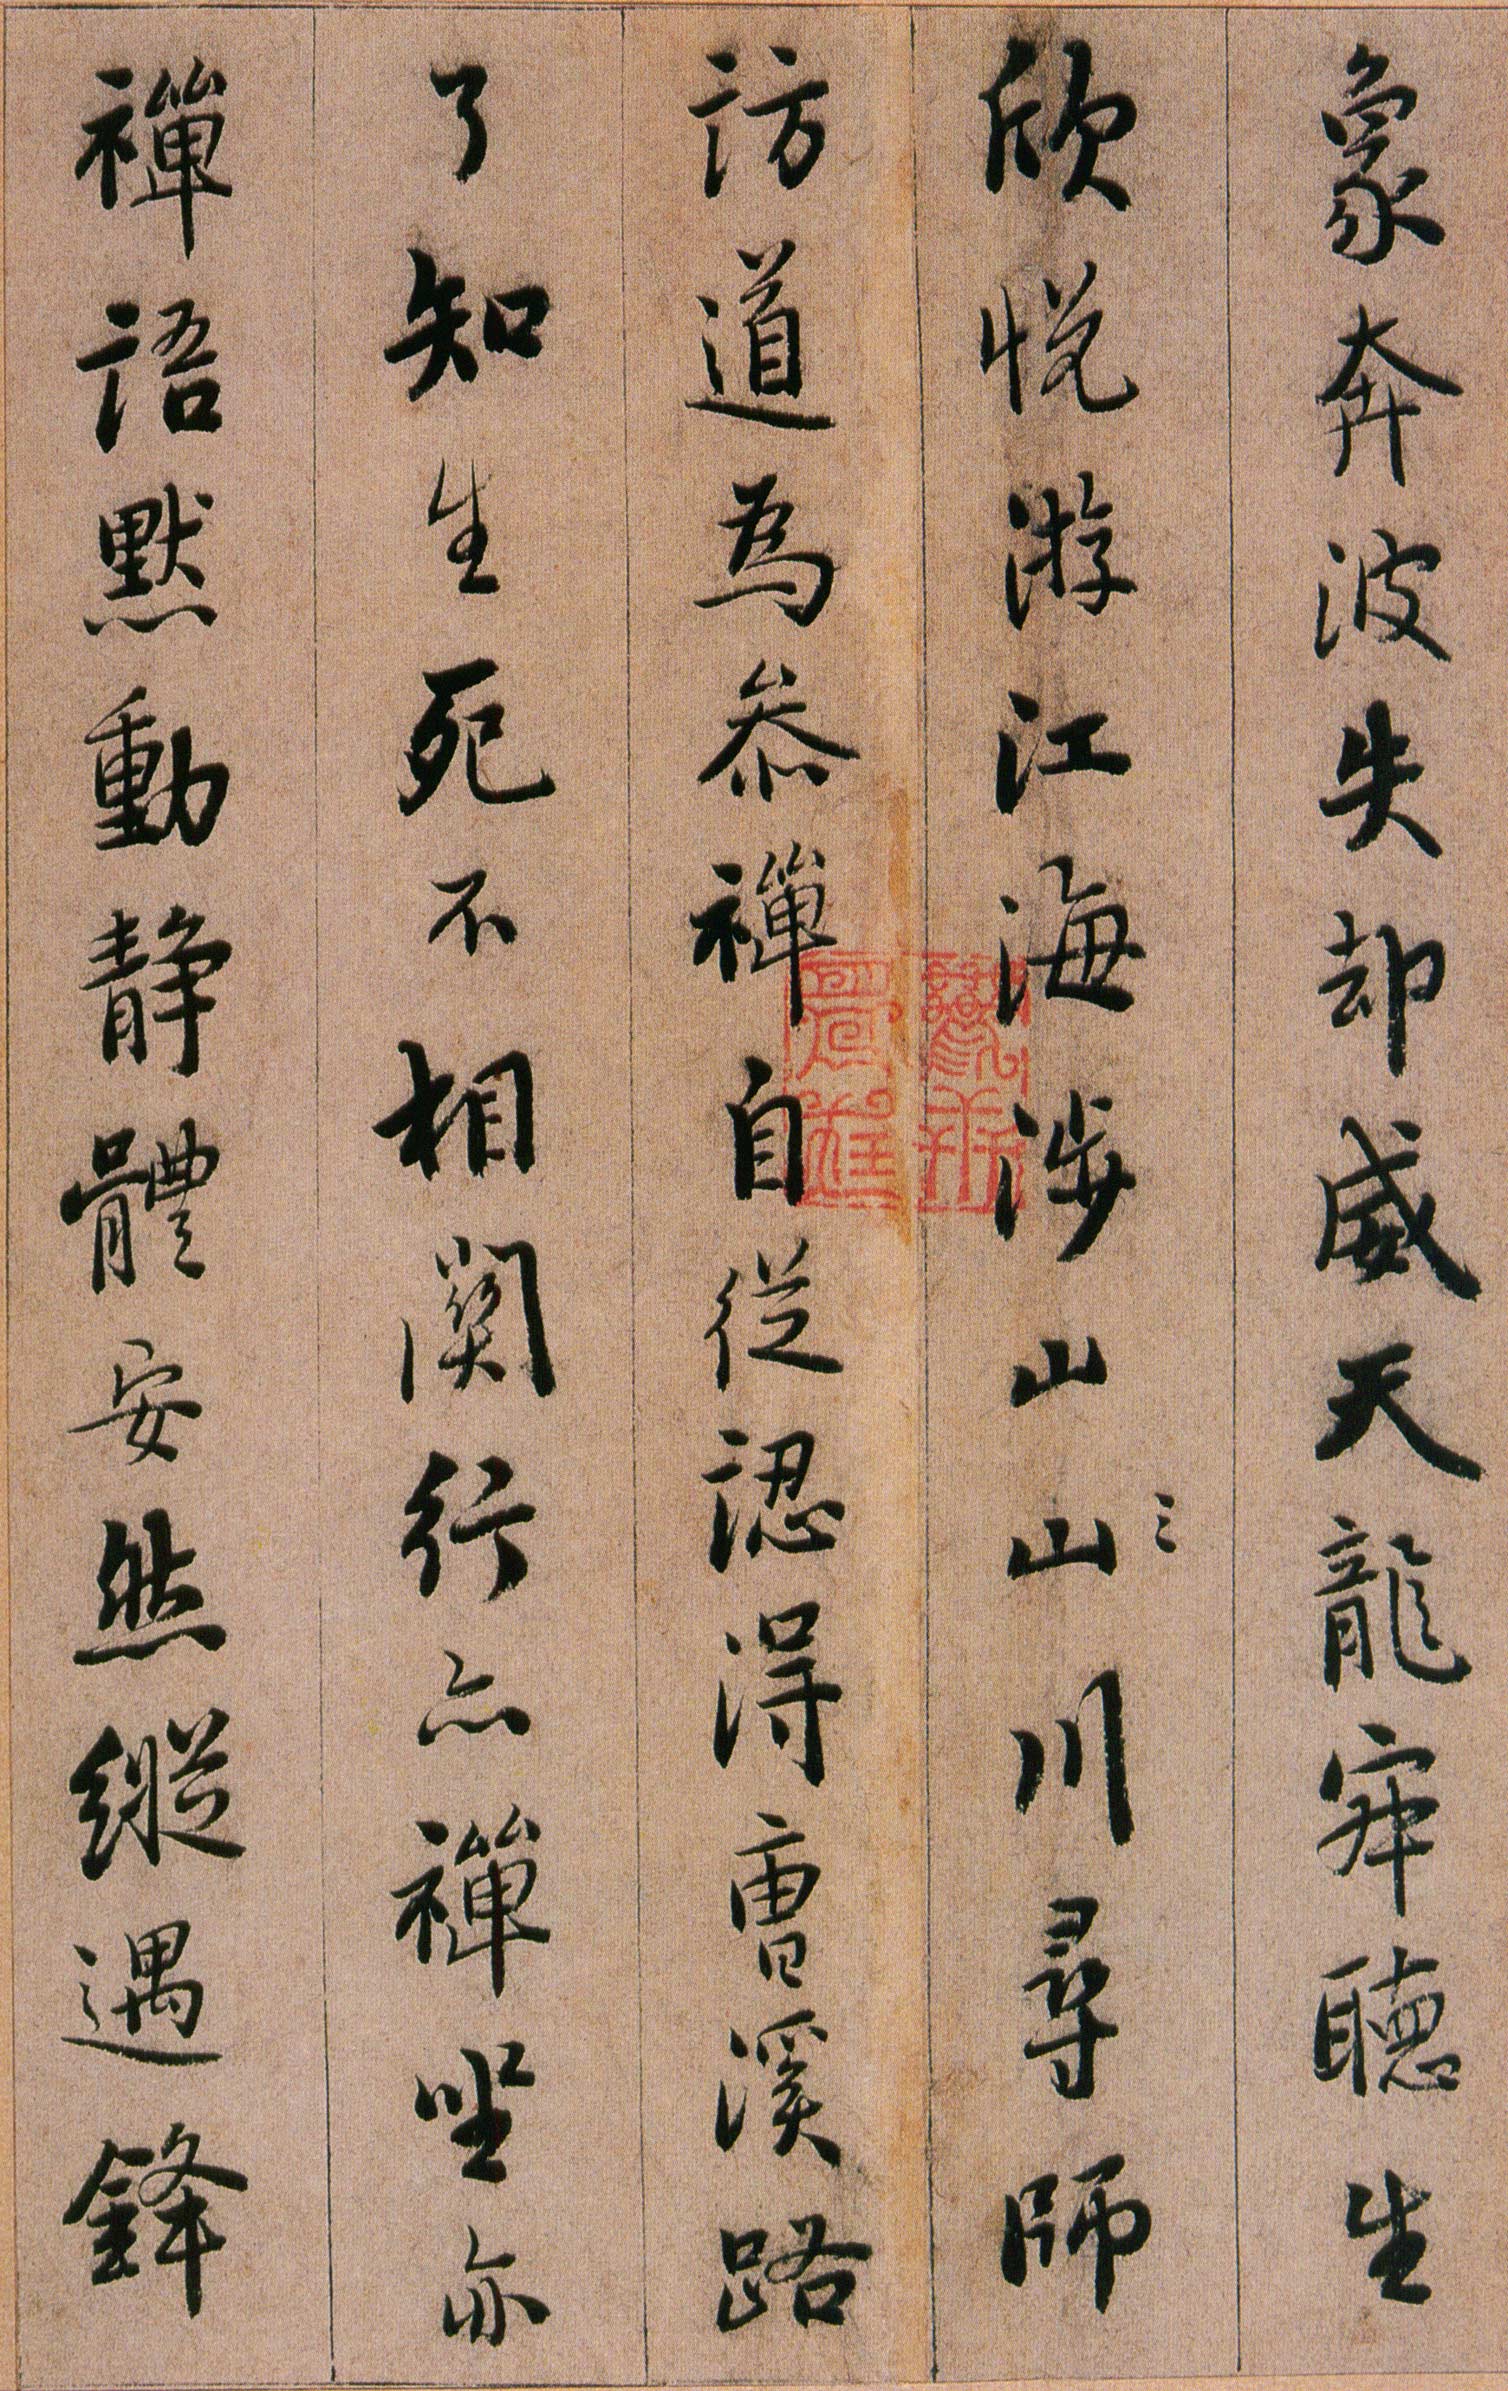 象奔波失却威天龍寂聽生
欣悦游江海涉山山川尋師
訪道為叅禪自從認得曹溪路
了知生死不相関行亦禪坐亦
禪語默動静體安然縱遇鋒